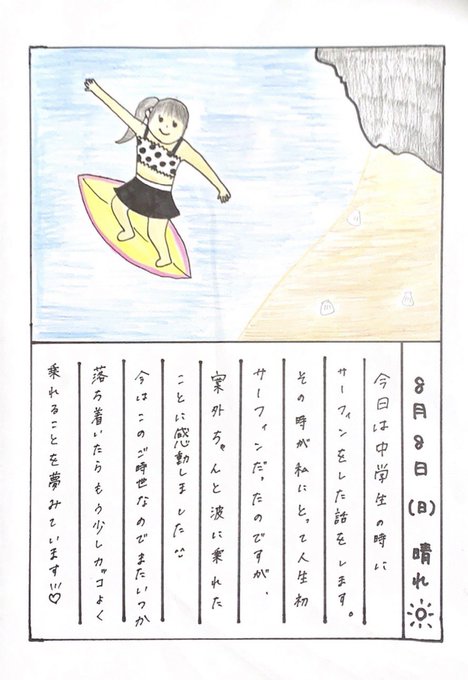 8月8日(日) 晴れ
今日は中学生の時に
サーフィンをした話をします。
その時が私にとって人生初
サーフィンだったのですが、
案外ちゃんと波に乗れた
ことに感動しました^^
今はこのご時世なのでまたいつか
落ち着いたらもう少しカッコよく
乗れることを夢みています!!!♡